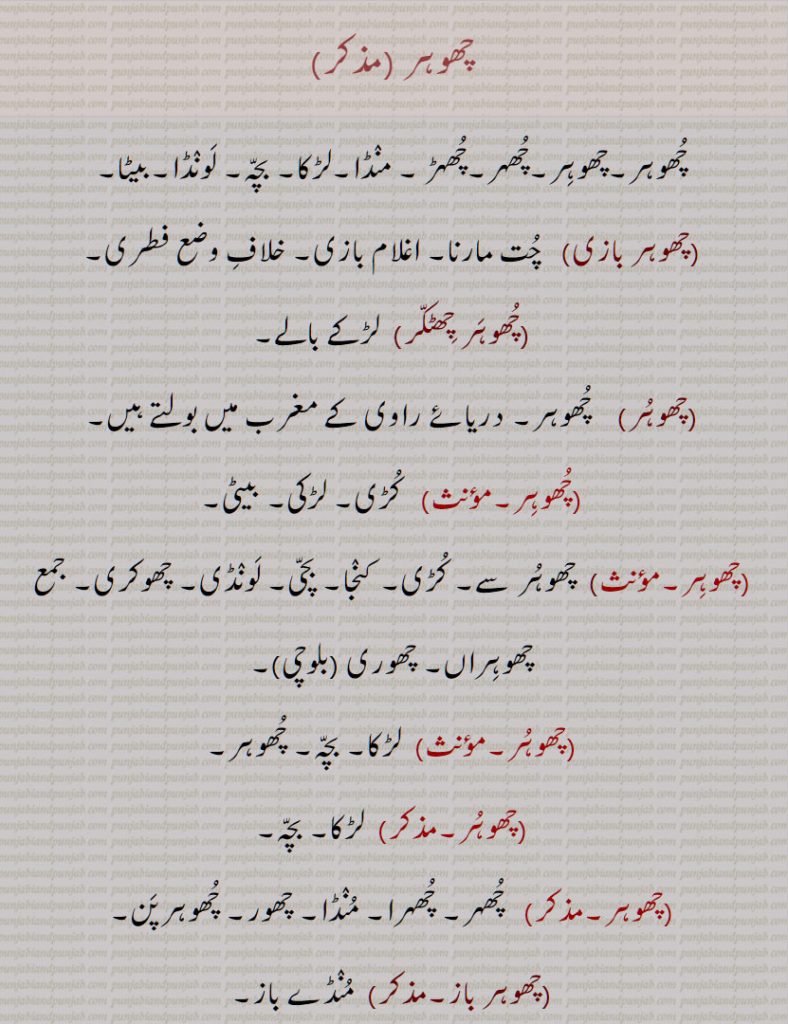 چھوہر (مذکر)
چُھوہر۔چھوہِر۔چُھہر۔چُھہڑ ۔ منْڈا۔لڑکا۔ بچّہ۔ لَونْڈا۔بیٹا۔
(چھوہر بازی) چُت مارنا۔ اغلام بازی۔ خلافِ وضع فطری۔
(چُھوہَر چِھٹکّر) لڑکے بالے۔
(چھوہُر) چُھوہر۔ دریائے راوی کے مغرب میں بولتے ہیں۔
(چُھوہِر۔مؤنث) کُڑی۔ لڑکی۔ بیٹی۔
(چھوہِر۔مؤنث) چھوہُر سے۔ کُڑی۔ کنْجا۔ بچّی۔ لَونْڈی۔ چھوکری۔ جمع
چھوہِراں۔ چھوری (بلوچی)۔
(چھوہُر۔مؤنث) لڑکا۔ بچّہ۔ چُھوہر۔
(چھوہُر۔مذکر) لڑکا۔ بچّہ۔
(چھوہر۔مذکر) چُھہر۔ چُھہرا۔ مُنْڈا۔ چھور۔ چُھوہر پَن۔
(چھوہر باز۔مذکر) مُنْڈے باز۔